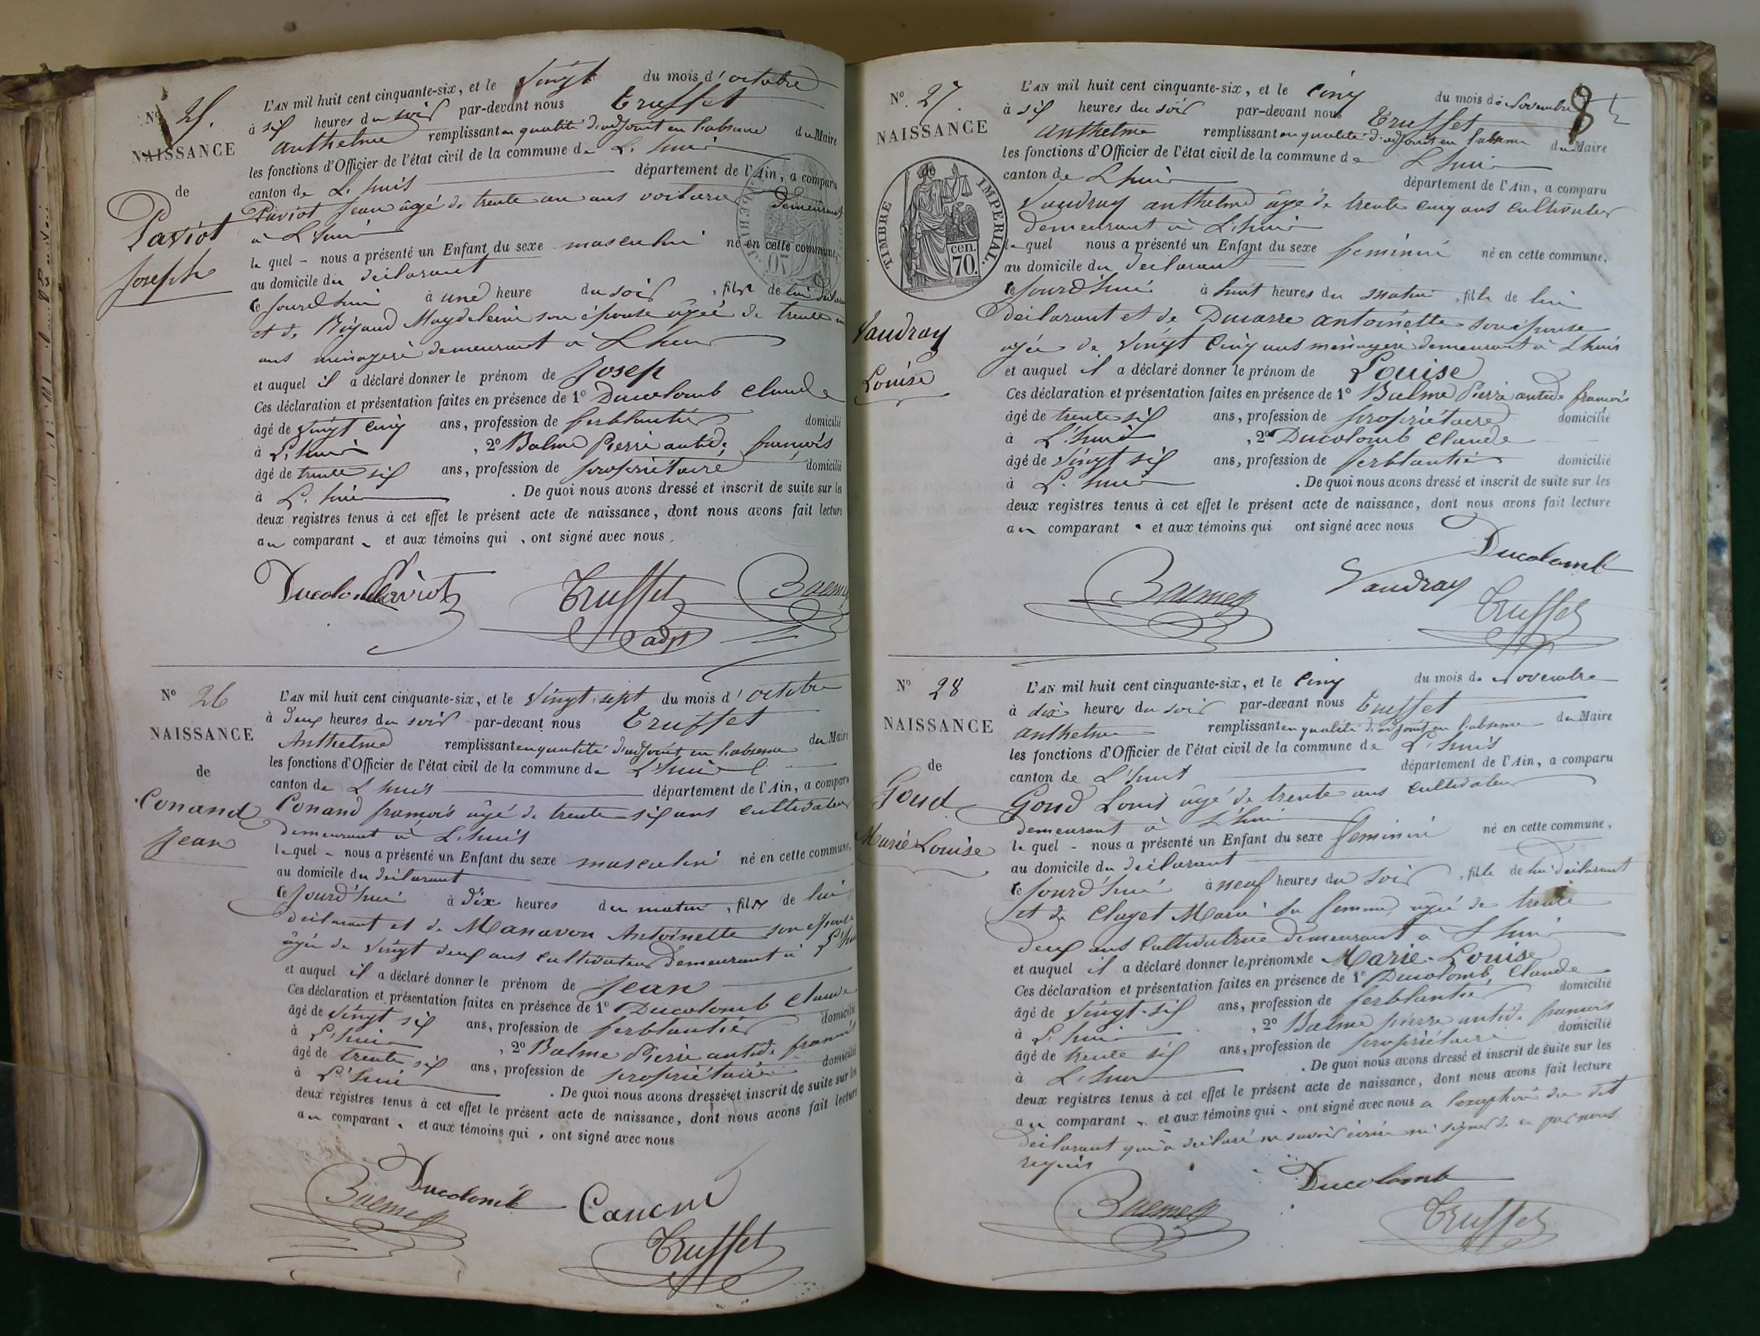 N° 25.
NAISSANCE
de
Paviot
Joseph
L'AN mil huit cent cinquante-six, et le Vingt du mois d'octobre
à six heures du soir par-devant nous Truffet
Anthelme remplissant en qualité d'adjoint en l'absence du Maire
les fonctions d'Officier de l'état civil de la commune de L'huis
canton de L'huis département de l'Ain, a comparu
Paviot Jean âgé de trente un ans voiturier demeurant
à L'huis
lequel nous a présenté un Enfant du sexe masculin né en cette commune,
au domicile du déclarant
ce jourd'hui à une heure du soir, fils de lui déclarant
et de Rigaud Magdeleine son épouse âgée de trente un
ans ménagère demeurant à Lhuis
et auquel il a déclaré donner le prénom de Josep
Ces déclaration et présentation faites en présence de 1° Ducolomb Claude
âgé de vingt cinq ans, profession de ferblantier domicilié
à L'huis, 2° Balme Pierre antide françois
âgé de trente six ans, profession de propriétaire domicilié
à L'huis. De quoi nous avons dressé et inscrit de suite sur les
deux registres tenus à cet effet le présent acte de naissance, dont nous avons fait lecture
au comparant et aux témoins qui ont signé avec nous.
Ducolomb Paviot Truffet Balme
adjt
N° 26
NAISSANCE
de
Conand
Jean
L'AN mil huit cent cinquante-six, et le Vingt-sept du mois d'octobre
à deux heures du soir par-devant nous Truffet
Anthelme remplissant en qualité d'adjoint en l'absence du Maire
les fonctions d'Officier de l'état civil de la commune de L'huis
canton de L'huis département de l'Ain, a comparu
Conand françois âgé de trente-six ans cultivateur
demeurant à L'huis
lequel nous a présenté un Enfant du sexe masculin né en cette commune,
au domicile du déclarant
ce jourd'hui à dix heures du matin, fils de lui
déclarant et de Manavon Antoinette son épouse
âgée de vingt deux ans cultivateur demeurant à L'huis
et auquel il a déclaré donner le prénom de Jean
Ces déclaration et présentation faites en présence de 1° Ducolomb Claude
âgé de vingt six ans, profession de ferblantier domicilié
à L'huis, 2° Balme Pierre antide françois
âgé de trente six ans, profession de propriétaire domicilié
à L'huis. De quoi nous avons dressé et inscrit de suite sur les
deux registres tenus à cet effet le présent acte de naissance, dont nous avons fait lecture
au comparant et aux témoins qui ont signé avec nous
Balme Ducolomb Truffet
N° 27.
NAISSANCE
TIMBRE IMPERIAL.
70. cen.
Vaudray
Louise
L'AN mil huit cent cinquante-six, et le cinq du mois de Novembre
à six heures du soir par-devant nous Truffet
Anthelme remplissant en qualité d'adjoint en l'absence du Maire
les fonctions d'Officier de l'état civil de la commune de Lhuis
canton de Lhuis département de l'Ain, a comparu
Vaudray anthelme âgé de trente cinq ans cultivateur
demeurant à L'huis
lequel nous a présenté un Enfant du sexe féminin né en cette commune,
au domicile du déclarant
ce jourd'hui à huit heures du matin, fille de lui
déclarant et de Ducarre antoinette son épouse
agée de vingt cinq ans ménagère demeurant à Lhuis
et auquel il a déclaré donner le prénom de Louise
Ces déclaration et présentation faites en présence de 1° Balme Pierre antide françois
âgé de trente six ans, profession de propriétaire domicilié
à L'huis, 2° Ducolomb Claude
âgé de vingt six ans, profession de ferblantier domicilié
à L'huis. De quoi nous avons dressé et inscrit de suite sur les
deux registres tenus à cet effet le présent acte de naissance, dont nous avons fait lecture
au comparant et aux témoins qui ont signé avec nous
Ducolomb
Balme Vaudray Truffet
N° 28
NAISSANCE
de
Goud
Marie Louise
L'AN mil huit cent cinquante-six, et le cinq du mois de Novembre
à dix heures du soir par-devant nous Truffet
anthelme remplissant en qualité d'adjoint en l'absence du Maire
les fonctions d'Officier de l'état civil de la commune de L'huis
canton de L'huis département de l'Ain, a comparu
Goud Louis âgé de trente ans cultivateur
demeurant à L'huis
lequel nous a présenté un Enfant du sexe féminin né en cette commune,
au domicile du déclarant
ce jourd'hui à neuf heures du soir, fille de lui déclarant
et de Clayet Marie sa femme, agée de trente
deux ans cultivatrice demeurant à Lhuis
et auquel il a déclaré donner le prénom de Marie-Louise
Ces déclaration et présentation faites en présence de 1° Ducolomb Claude
âgé de vingt-six ans, profession de ferblantier domicilié
à L'huis, 2° Balme pierre antide françois
âgé de trente six ans, profession de propriétaire domicilié
à L'huis. De quoi nous avons dressé et inscrit de suite sur les
deux registres tenus à cet effet le présent acte de naissance, dont nous avons fait lecture
au comparant et aux témoins qui ont signé avec nous a l'exception du dit
déclarant qui a déclaré ne savoir écrire ni signer de ce par nous
requis
Balme Ducolomb Truffet